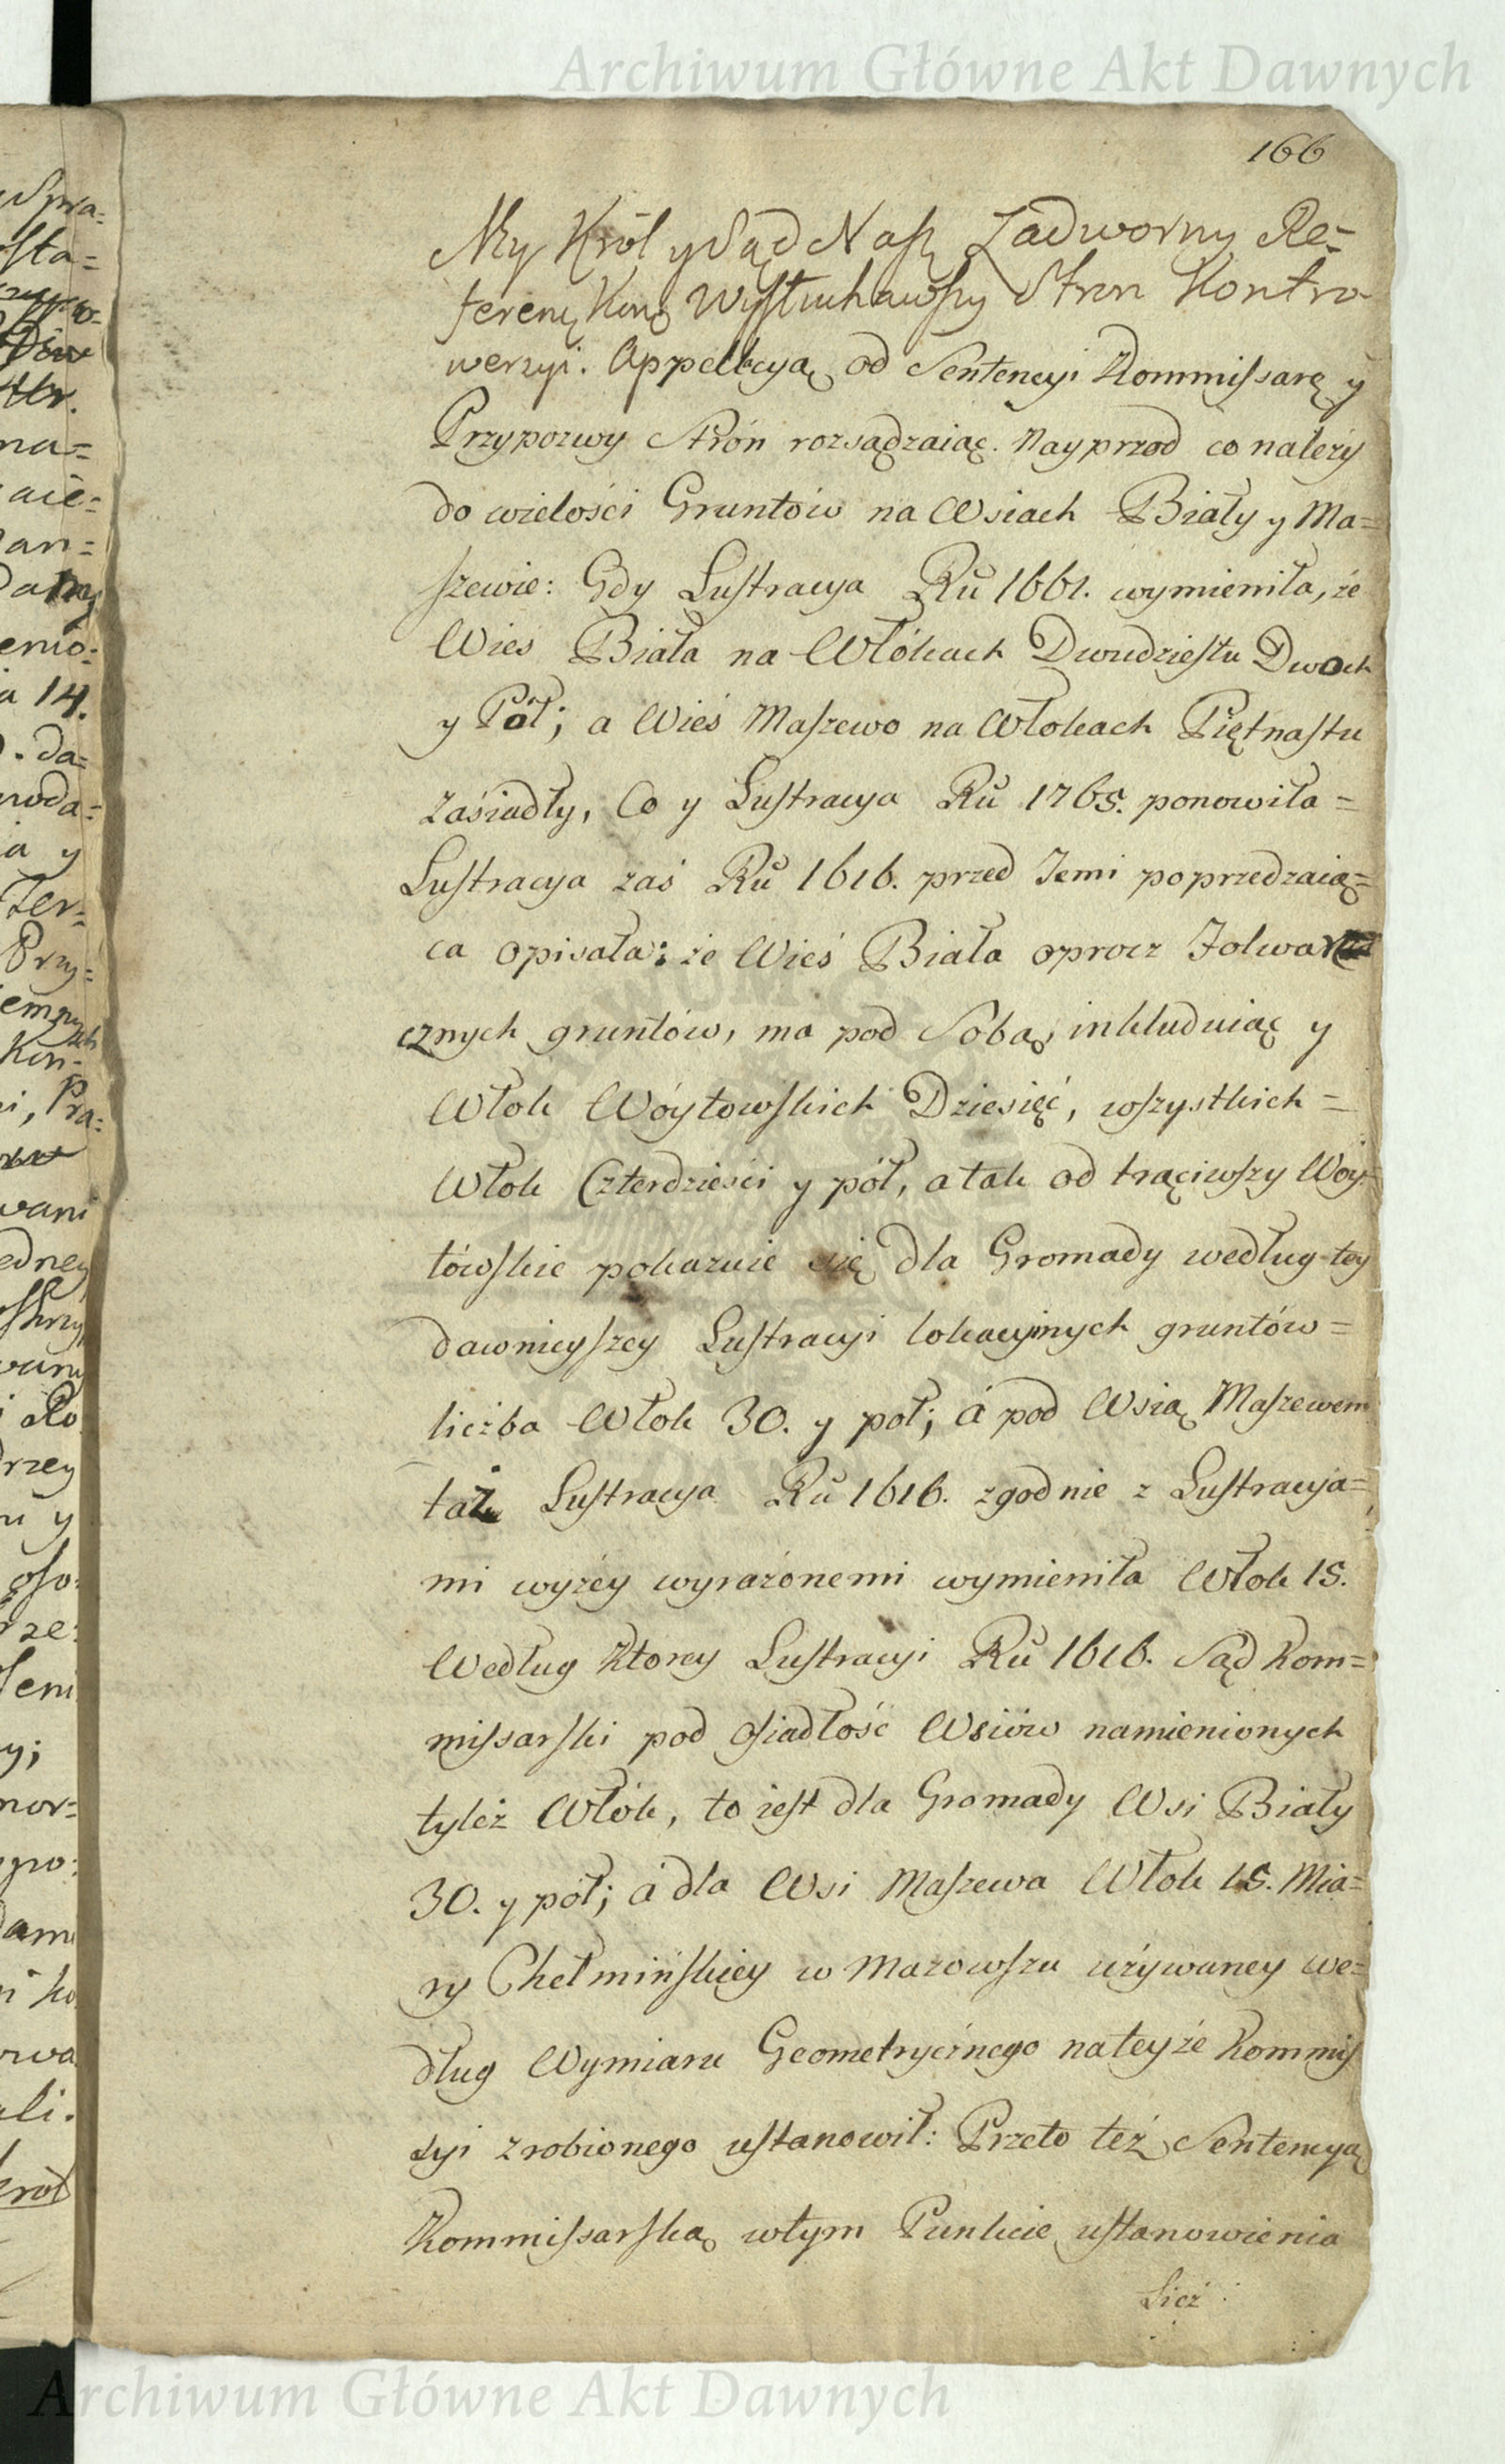 Archiwum Główne Akt Dawnych
166
My Król y Sąd Nasz Zadworny Re=
ferend. Kor. Wysłuchawszy Stron Kontro-
wersyi. Appellacyą od Sentencyi Kommissarę y
Przypozwy Strón rozsądzaiąc. Nayprzod co należy
do wielości Gruntów na Wsiach Biały y Ma=
szewie: Gdy Lustracya Ru 1661. wymieniła, że
Wies Biała na Włókach Dwudziestu Dwoch
y Pół; a Wieś Maszewo na Włokach Piętnastu
zasiadły, Co y Lustracya Ru 1765. ponowiła =
Lustracya zaś Ru 1616. przed Temi poprzedzaią=
ca opisała: że Wieś Biała oprocz Folwar
cznych gruntów, ma pod Sobą, inkluduiąc y
Włok Wóytowskich Dziesięć, wszystkich =
Włok Czterdzieści y pół, a tak od trąciwszy Woy=
tówskie pokazuie się dla Gromady według tey
dawnieyszey Lustracyi lokacyinych gruntów =
liczba Włok 30. y poł; á pod Wsią Maszewem
taż Lustracya Ru 1616. zgodnie z Lustracya=
mi wyżey wyrażonemi wymieniła Włok 15.
Według Ktorey Lustracyi Ru 1616. Sąd Kom=
missarski pod osiadłość Wsiów namienionych
tyleż Włók, to iest dla Gromady Wsi Biały
30. y pół; á dla Wsi Maszewa Włok 15. Mia=
ry Chełmińskiey w Mazowszu używaney we=
dług Wymiaru Geometrycznego na teyże Kommis
syi zrobionego ustanowił: Przeto też Sentencyą
Kommissarską w tym Punkcie ustanowienia
Licz
Archiwum Główne Akt Dawnych